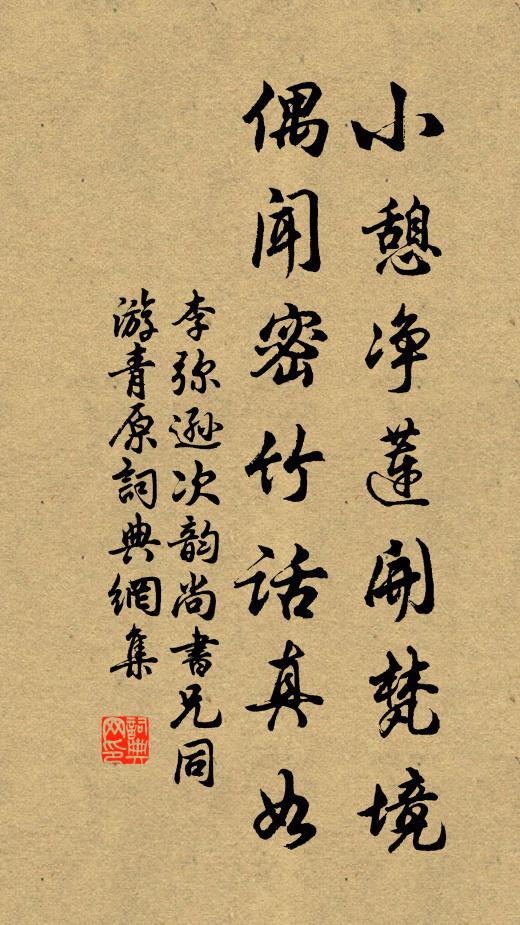 小憩净莲開梵境
偶闻密竹话真如
李弥遜次韵尚書兄同
游青原詞典網集
詞典网印